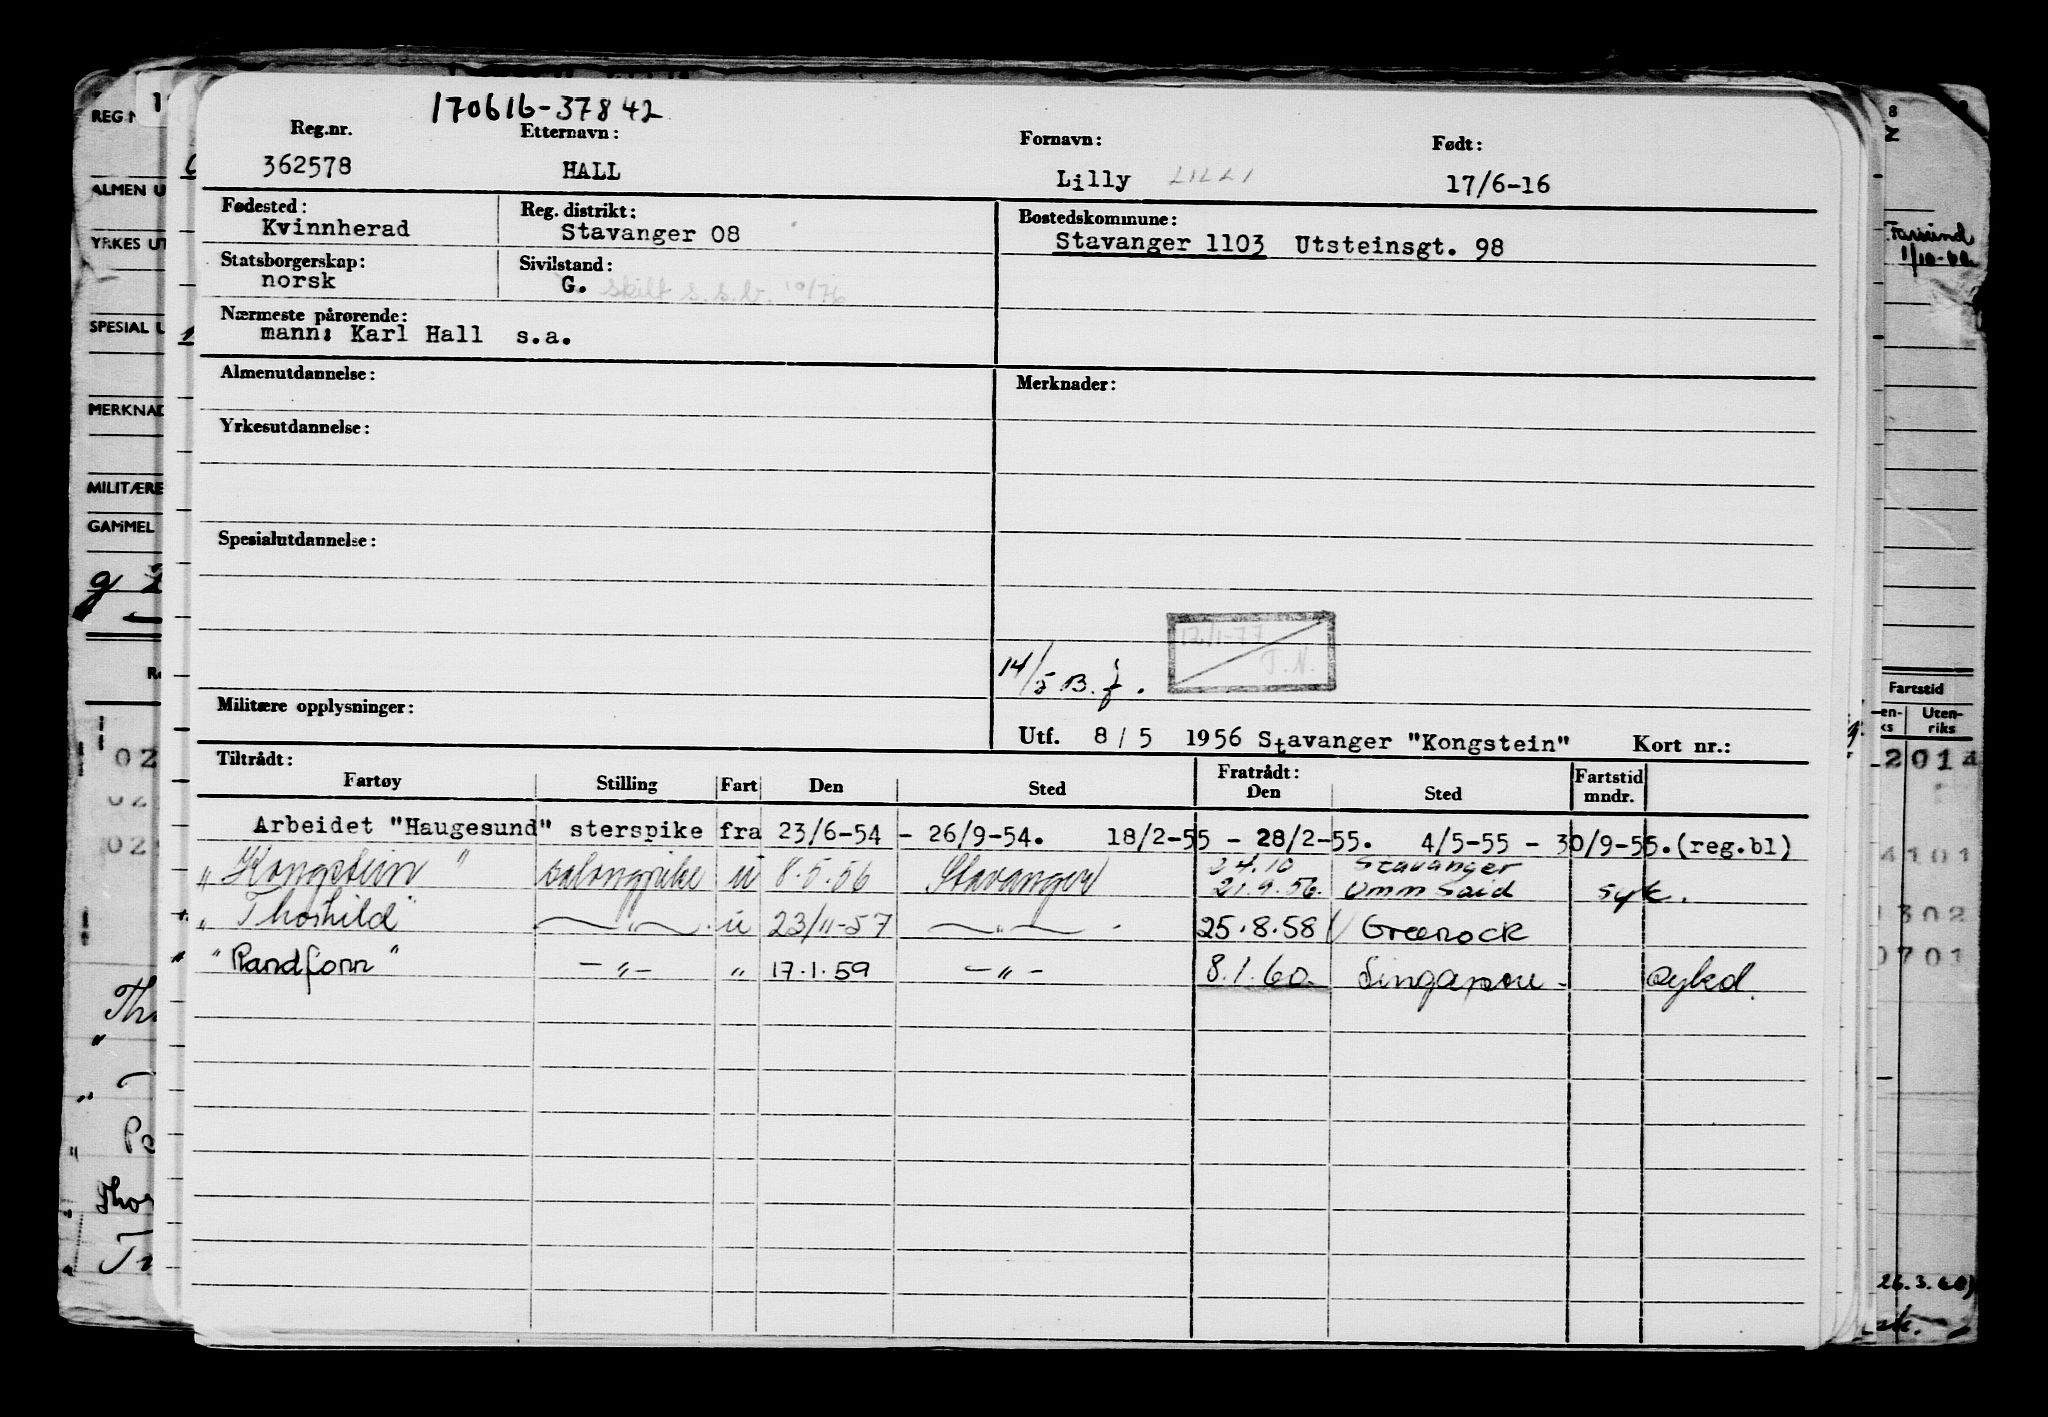 170616-37842
Reg.nr. Etternavn: Fornavn: Født:
362578 HALL Lilly LILLI 17/6-16
Fødested: Reg. distrikt: Bostedskommune:
Kvinnherad Stavanger 08 Stavanger 1103 Utsteinsgt. 98
Statsborgerskap: Sivilstand:
norsk G. skilt s.s.b. 10/76
Nærmeste pårørende:
mann: Karl Hall s.a.
Almenutdannelse: Merknader:
Yrkesutdannelse:
Spesialutdannelse:
12/1-77
T.N.
14/5 B. f.
Militære opplysninger:
Utf. 8/5 1956 Stavanger "Kongstein" Kort nr.:
Tiltrådt: Fratrådt: Fartstid
Fartøy Stilling Fart Den Sted Den Sted mndr.
Arbeidet "Haugesund" sterspike fra 23/6-54 - 26/9-54. 18/2-55 - 28/2-55. 4/5-55 - 30/9-55.(reg.bl)
24.10 Stavanger
"Kongstein" salongpike u 8.5.56 Stavanger 21.9.56. Umm Said syk.
"Thorhild" —"— u 23/11-57 —"— 25.8.58 Greenock
"Randfonn" —"— " 17.1.59 —"— 8.1.60. Singapore
REG N
ALMEN U
YRKES UT
SPESIAL U
MERKNAD
MILITÆRE
GAMMEL
Fartstid
Uten-
riks
2014
4101
1302
0701
26.3.60)